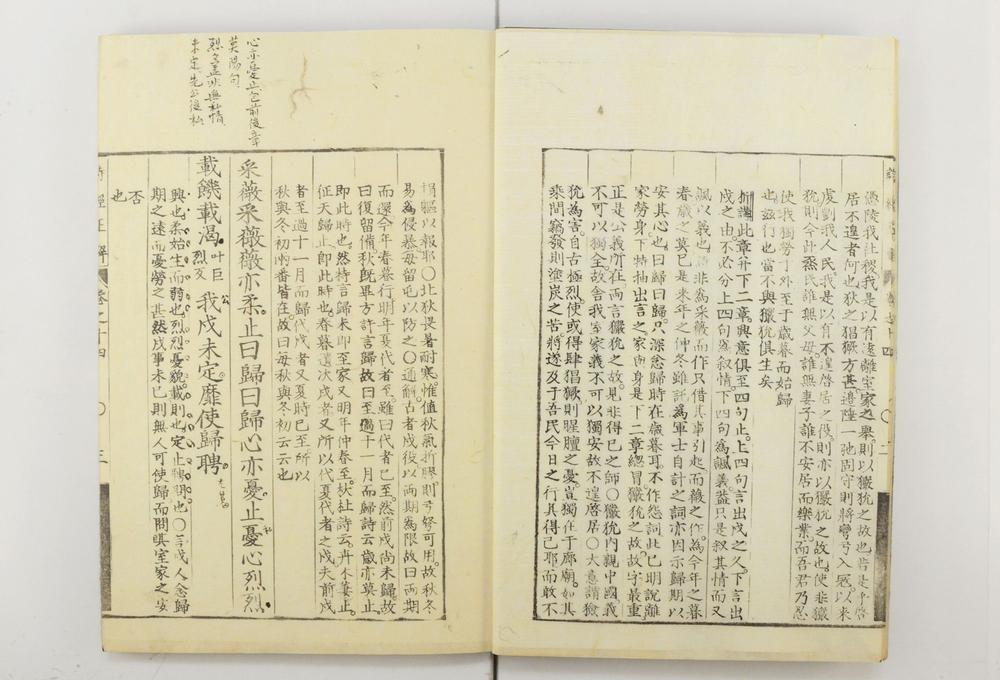 憑陵我社稷我是以有遠離室家之舉則以玁狁之故也昔是不啓
居不遑者何也狄之猖獗方甚邊陲一弛固守則將彎弓入寇以來
虔劉我人民我是以有不遑啓居之役則亦以玁狁之故也使非玁
狁則今此烝民誰無父母誰無妻子誰不安居而樂業而吾君乃忍
使我獨勞于外至于歲暮而始歸
也茲行也當不與玁狁俱生矣
析講此章并下二章興意俱至四句止上四句言出戍之久下言出
戍之由不必分上四句爲叙情下四句爲風義蓋只是叙其情而又
風以義也詩非為采薇而作只借其事引起而薇之作為今年之暮
春歲之莫已是來年之仲冬雖託為軍士自計之詞亦因示歸期以
安其心也曰歸曰歸只深念歸時在歲暮耳不作怨詞此已明說離
家勞身下特抽出言之家與身是下二章總冒玁狁之故故字最重
正是公義所在兩言玁狁之故見非得已之師○玁狁內覬中國義
不可以獨全故舍我室家義不可以獨安故不遑啓居○大意謂玁
狁為害自古極烈使或得肆猖獗則腥膻之憂豈獨在于廊廟如其
乘間竊發則塗炭之苦將遂及于吾民今日之行其得已耶而敢不
捐軀以報耶○北狄畏暑耐寒惟值秋氣折膠則弓弩可用故秋冬
易為侵暴每留屯以防之○通解古者戍役以兩期為限故曰兩期
而還今年春暮行明年夏代者至雖曰代者已至然前戍尚未歸故
曰復留備秋旣畢方許言歸故曰至過十一月而歸詩云歲亦莫止
即此時也然特言歸未即至家又明年仲春至杕杜詩云卉木萋止
征夫歸止即此時也春暮遣次戍者又所以代夏代者之戍夫前戍
者至過十一月而歸代戍者又夏時已至所以
秋與冬初兩番皆在故曰每秋與冬初云云也
采薇采薇薇亦柔止曰歸曰歸心亦憂止憂心烈烈
載饑載渴叶巨烈反我戍未定靡使歸聘
興也柔始生而弱也烈烈憂貌載則也定止聘問也○言戍人念歸
期之遠而憂勞之甚然戍事未已則無人可使歸而問其室家之安
否
也
心亦憂止包前後章
莫陽句
烈烈蓋非無私情
未定先公後私
詩經正解
卷之十四
○
三